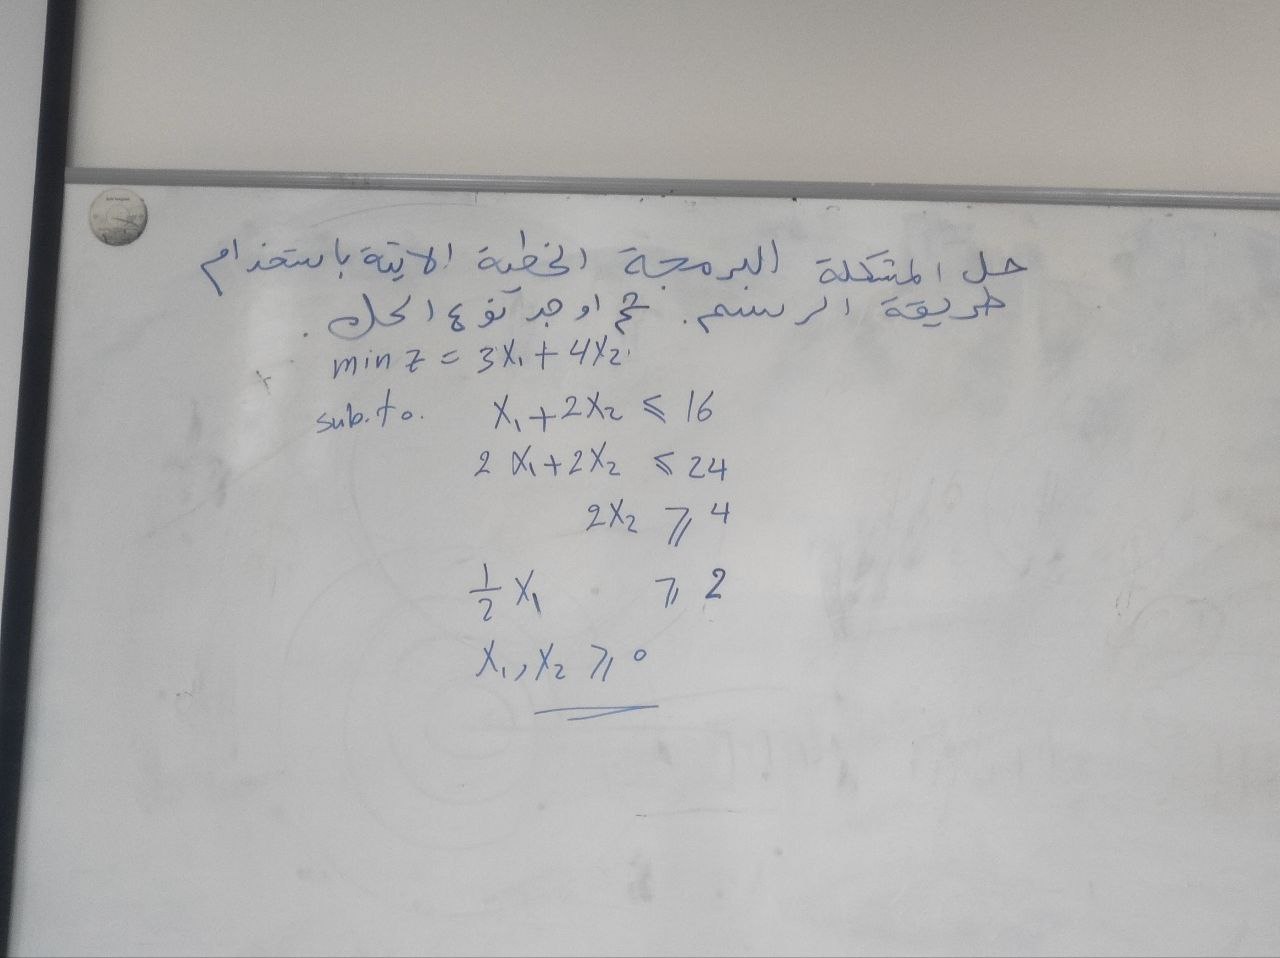 حل المشكلة البرمجة الخطية الاتية باستخدام
طريقة الرسم. ثم اوجد نوع الحل.
min z = 3X₁ + 4X₂.
sub.to. X₁ + 2X₂ ⩽ 16
2 X₁ + 2X₂ ⩽ 24
2X₂ ⩾ 4
½ X₁ ⩾ 2
X₁, X₂ ⩾ 0